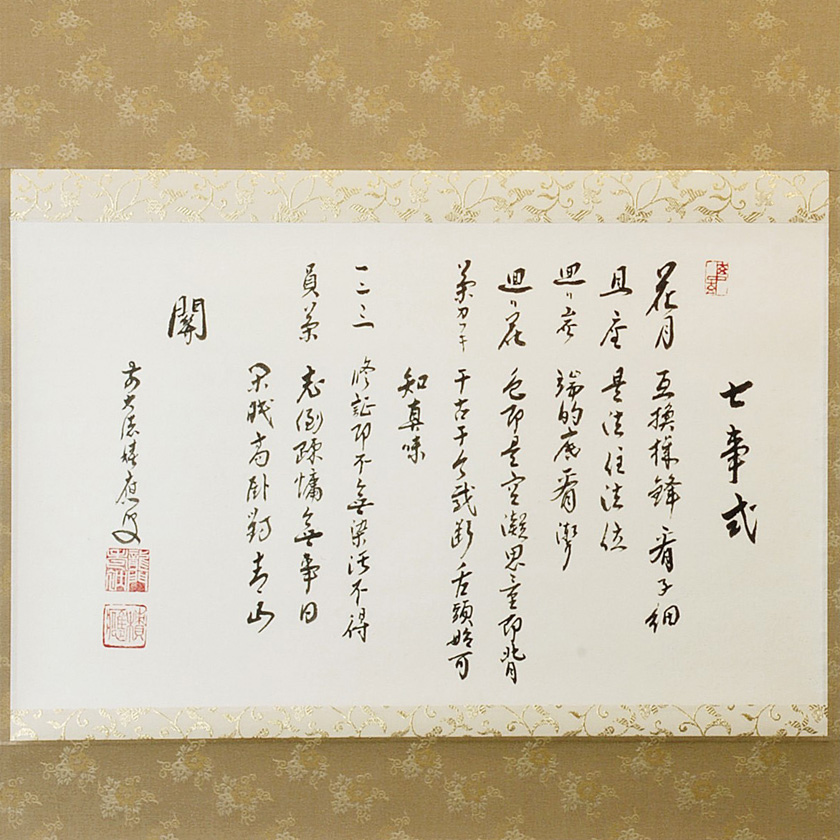 七事式
花月 互換機鋒看子細
且座 是法住法位
廻リ炭 端的底看聻
廻リ花 色即是空凝思量即背
茶カフキ 于古于今截断舌頭始可
知真味
一二三 修証即不無染汚不得
員茶 老倒疎慵無事日
閑眠高臥對青山
關
前大徳積應叟